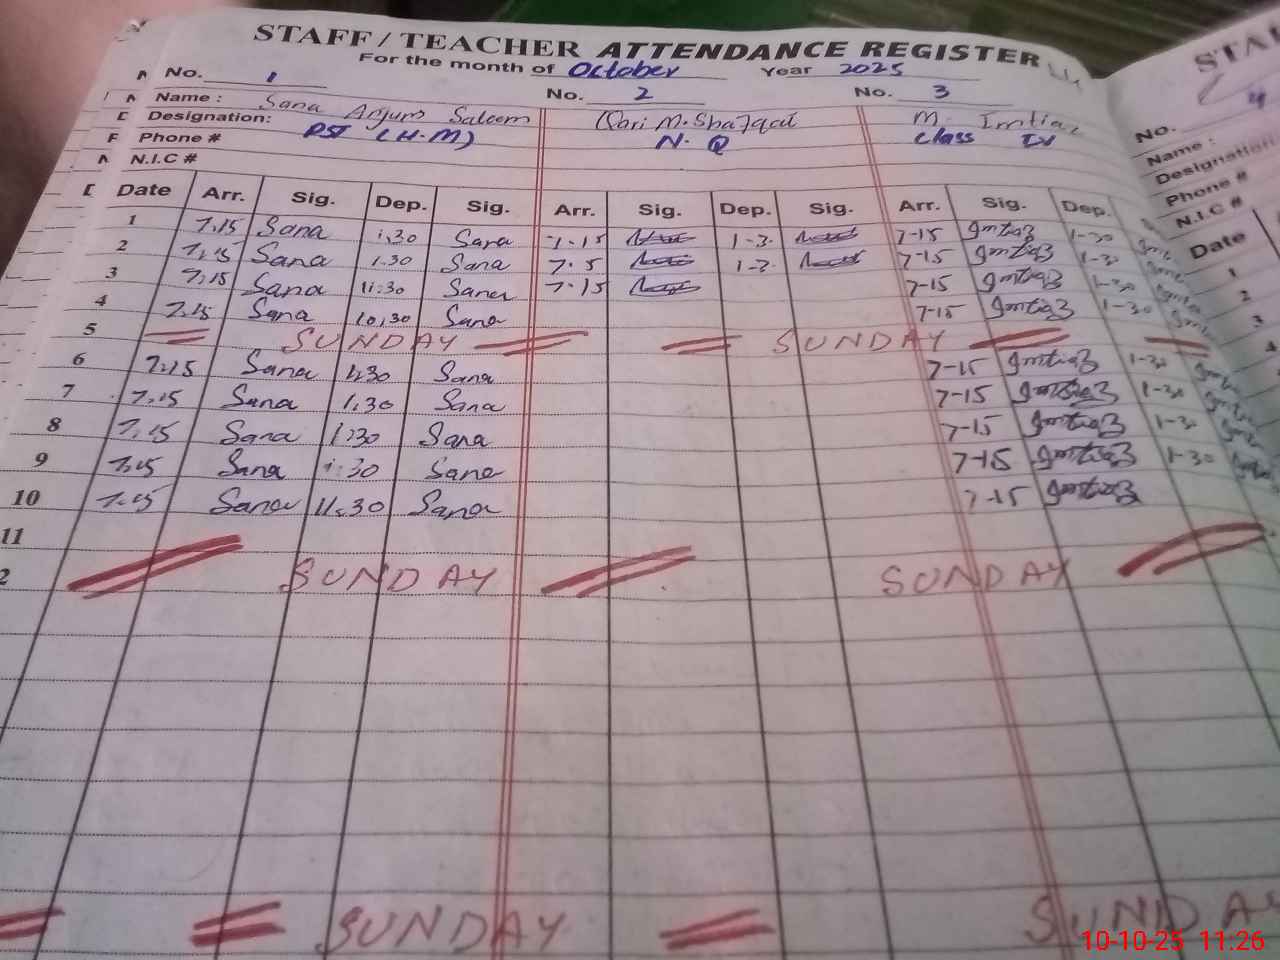 STAFF / TEACHER ATTENDANCE REGISTER
For the month of October Year 2025
No. 1 No. 2 No. 3
Name : Sana Anjum Saleem Qari M. Shafqat M. Imtiaz
Designation: PST (H.M) N. Q Class IV
Phone #
N.I.C #
Date Arr. Sig. Dep. Sig. Arr. Sig. Dep. Sig. Arr. Sig. Dep.
1 7.15 Sana 1.30 Sana 7-15 1-3 7-15 Imtiaz 1-30
2 7.15 Sana 1.30 Sana 7.5 1-3 7-15 Imtiaz 1-30
3 7.15 Sana 11:30 Sana 7.15 7-15 Imtiaz 1-30
4 7.15 Sana 10.30 Sana 7-15 Imtiaz 1-30
5 SUNDAY SUNDAY
6 7.15 Sana 1.30 Sana 7-15 Imtiaz 1-30
7 7.15 Sana 1.30 Sana 7-15 Imtiaz 1-30
8 7.15 Sana 1:30 Sana 7-15 Imtiaz 1-30
9 7.15 Sana 1:30 Sana 7-15 Imtiaz 1-30
10 7.15 Sana 11.30 Sana 7-15 Imtiaz
11
2 SUNDAY SUNDAY
SUNDAY SUNDAY
STA
No. 4
Name :
Designation
Phone #
N.I.C #
Date
1
2
3
4
10-10-25 11:26